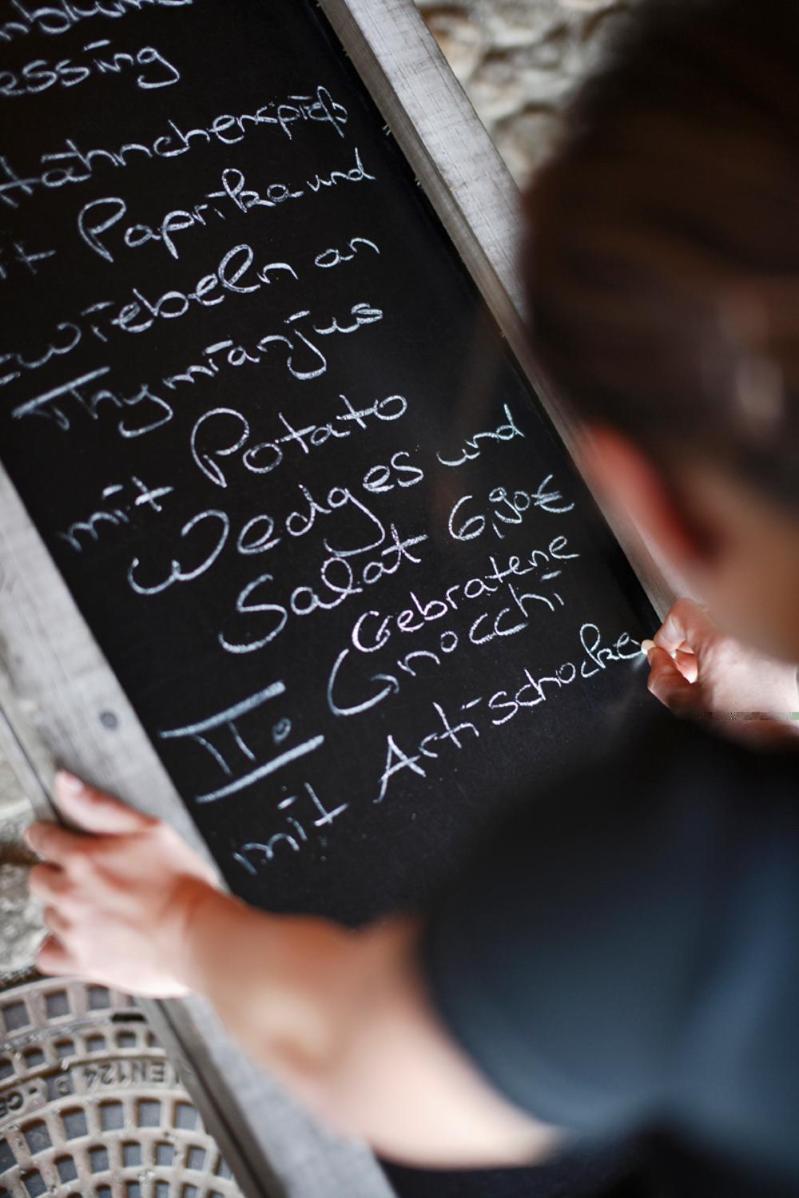 essing
Hähnchenspieß
it Paprika und
zwiebeln an
Thymianjus
mit Potato
Wedges und
Salat 6,90€
II. Gebratene
Gnocchi
mit Artischocke
EN124 D